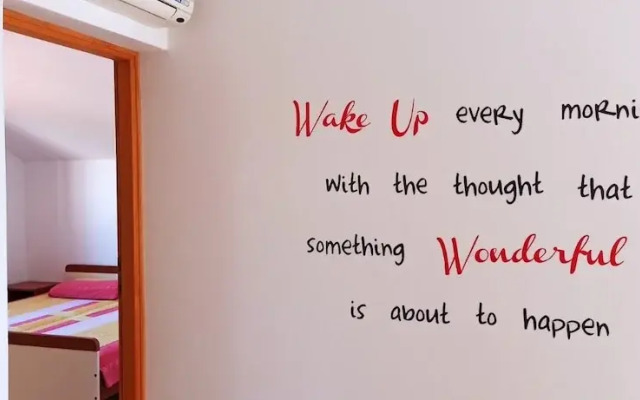 Wake Up every morni
with the thought that
something Wonderful
is about to happen